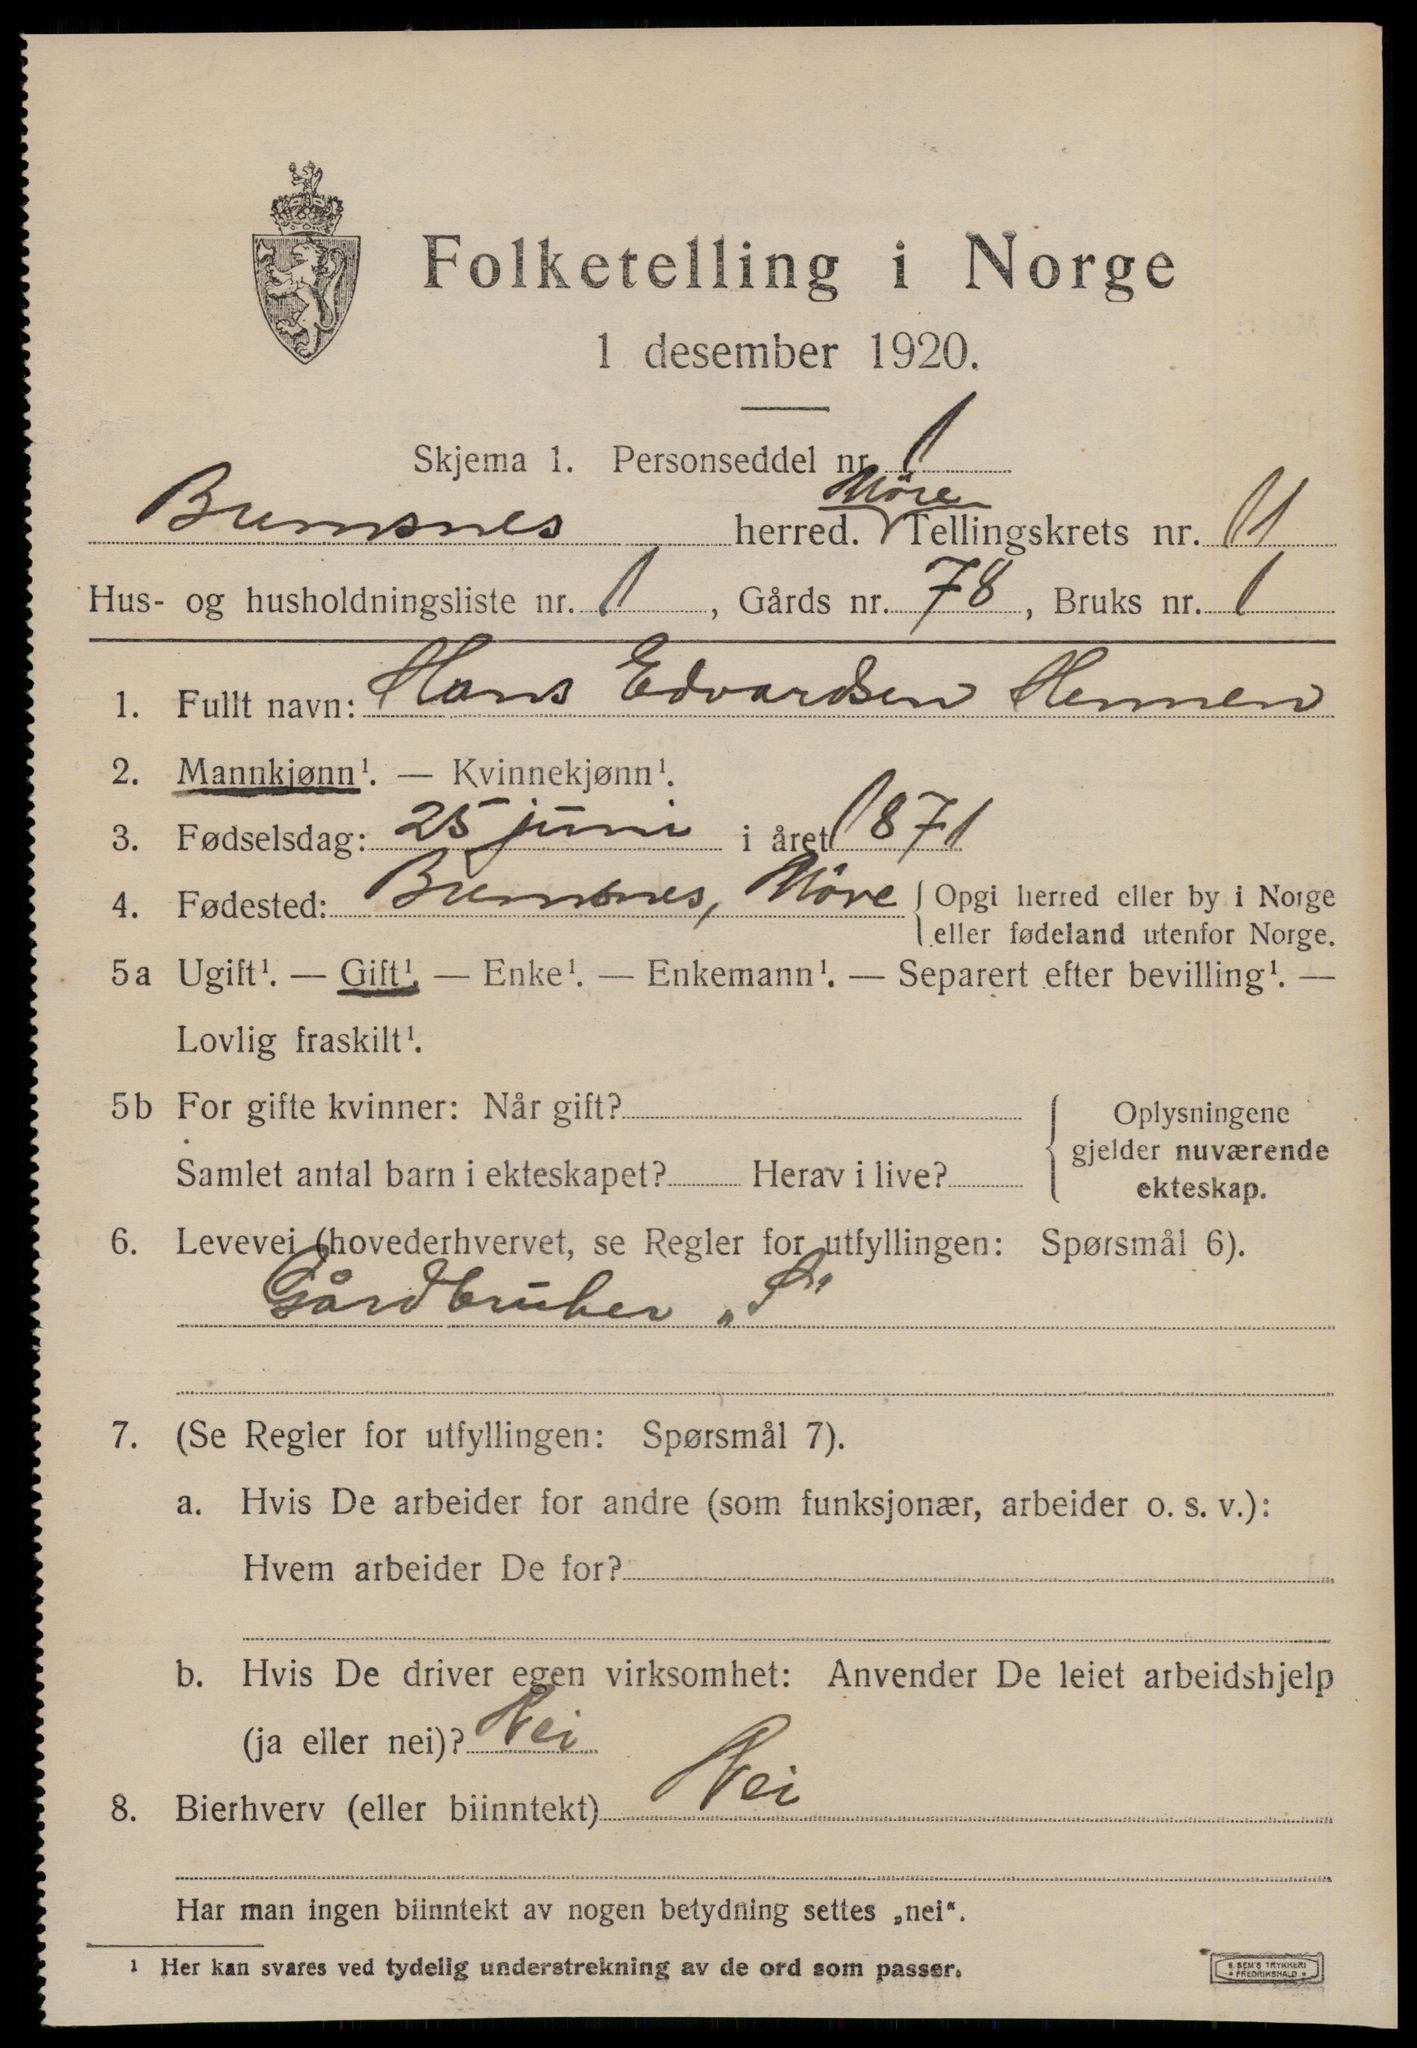 Folketelling i Norge
1 desember 1920.
Skjema 1. Personseddel nr. 1
Bremsnes herred. Møre Tellingskrets nr. 11
Hus- og husholdningsliste nr. 1, Gårds nr. 78, Bruks nr. 1
1. Fullt navn: Hans Edvardsen Hennen
2. Mannkjønn¹. — Kvinnekjønn¹.
3. Fødselsdag: 25 juni i året 1871
4. Fødested: Bremsnes, Møre { Opgi herred eller by i Norge
eller fødeland utenfor Norge.
5a Ugift¹. — Gift¹. — Enke¹. — Enkemann¹. — Separert efter bevilling¹. —
Lovlig fraskilt¹.
5b For gifte kvinner: Når gift?
Samlet antal barn i ekteskapet? Herav i live?
Oplysningene
gjelder nuværende
ekteskap.
6. Levevei (hovederhvervet, se Regler for utfyllingen: Spørsmål 6).
Gårdbruker „S"
7. (Se Regler for utfyllingen: Spørsmål 7).
a. Hvis De arbeider for andre (som funksjonær, arbeider o. s. v.):
Hvem arbeider De for?
b. Hvis De driver egen virksomhet: Anvender De leiet arbeidshjelp
(ja eller nei)? Nei
8. Bierhverv (eller biinntekt) Nei
Har man ingen biinntekt av nogen betydning settes „nei".
¹ Her kan svares ved tydelig understrekning av de ord som passer.
E. SEM'S TRYKKERI
FREDRIKSHALD